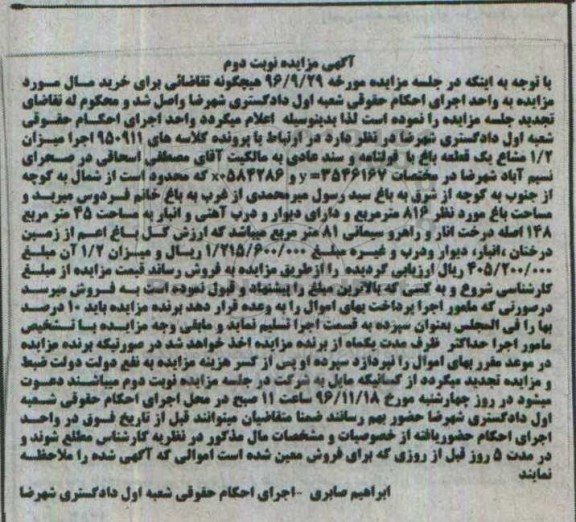 آگهی مزایده نوبت دوم
با توجه به اینکه در جلسه مزایده مورخه ۹۶/۹/۲۹ هیچگونه تقاضائی برای خرید مـال مـورد
مزایده به واحد اجرای احکام حقوقی شعبه اول دادگستری شهرضا واصل شد و محکوم له تقاضای
تجدید جلسه مزایده را نموده است لذا بدینوسیله اعلام میگردد واحد اجرای احکـام حقـوقی
شعبه اول دادگستری شهرضا در نظر دارد در ارتباط با پرونده کلاسه های ۹۵۰۹۱۱ اجرا میـزان
۱/۲ مشاع یک قطعه باغ با قولنامه و سند عادی به مالکیت آقای مصطفی اسحاقی در صحرای
نسیم آباد شهرضا در مختصات y=۳۵۴۶۱۶۷ و x=۰۵۸۴۲۸۶ که محدود است از شمال به کوچه
از جنوب به کوچه از شرق به باغ سید رسول میرمحمدی از غرب به باغ خانم فردوس میریـد و
مساحت باغ مورد نظر ۸۱۶ مترمربع و دارای دیوار و درب آهنی و انبار به مساحت ۴۵ متر مربع
۱۴۸ اصله درخت انار و راهرو سیمانی ۸۱ متر مربع میباشد که ارزش کـل بـاغ اعـم از زمـین
درختان ،انبار، دیوار ودرب و غیره مبلـغ ۱/۲۱۵/۶۰۰/۰۰۰ ریـال و میـزان ۱/۲ آن مبلـغ
۴۰۵/۲۰۰/۰۰۰ ریال ارزیابی گردیده را ازطریق مزایده به فروش رساند قیمت مزایده از مبلـغ
کارشناسی شروع و به کسی که بالاترین مبلغ را پیشنهاد و قبول نموده است به فـروش میرسـد
درصورتی که مامور اجرا پرداخت بهای اموال را به وعده قرار دهد برنده مزایده باید ۱۰ درصـد
بها را فی المجلس بعنوان سپرده به قسمت اجرا تسلیم نماید و مابقی وجه مزایـده بـا تـشخیص
مامور اجرا حداکثر ظرف مدت یکماه از برنده مزایده اخذ خواهد شد در صورتیکه برنده مزایده
در موعد مقرر بهای اموال را نپردازد سپرده او پس از کسر هزینه مزایده به نفع دولت دولت ضبط
و مزایده تجدید میگردد از کسانیکه مایل به شرکت در جلسه مزایده نوبت دوم میباشـند دعـوت
میشود در روز چهارشنبه مورخ ۹۶/۱۱/۱۸ ساعت ۱۱ صبح در محل اجرای احکام حقوقی شـعبه
اول دادگستری شهرضا حضور بهم رسانند ضمنا متقاضیان میتوانند قبل از تاریخ فـوق در واحـد
اجرای احکام حضوریافته از خصوصیات و مشخصات مال مذکور در نظریه کارشناس مطلع شوند و
در مدت ۵ روز قبل از روزی که برای فروش معین شده است اموالی که آگهی شده را ملاحظـه
نمایند
ابراهیم صابری -اجرای احکام حقوقی شعبه اول دادگستری شهرضا